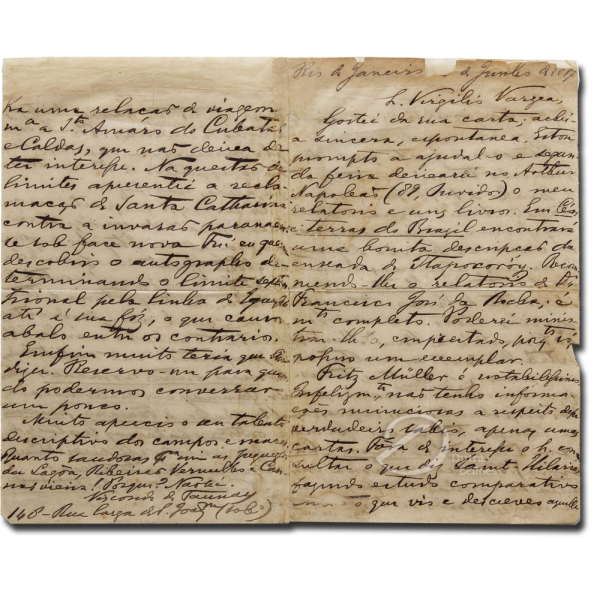 Rio de Janeiro de Junho de
S. Virgilio Varzea,
Gostei da sua carta; achei-a
sincera, espontanea. Estou
prompto a ajudal-o e segun-
da feira deixarei no Arthur
Napoleão (89, Ouvidor) o meu
relatorio e uns livros. Em Céos
e terras do Brazil encontrará
uma bonita descripção da
enseada de Itapocoróy. Recom-
mendo-lhe o relatorio de
Francisco José da Rocha; é
mto completo. Poderei minis-
tral-lh'o, emprestado, porq só
possuo um exemplar.
Fritz Müller é notabilissimo.
Infelizmte não tenho informa-
ções minuciosas a respeito
verdadeiro sabio, apenas umas
cartas. de interesse o S. con-
sultar o que diz Saint Hilaire,
fazendo estudo comparativo
o que vio e descreveu aquelle
ha uma relação de viagem
ma a Sto Amaro do Cubatão
e Caldas, que não deixa de
ter interesse. Na questão de
limites apresentei a recla-
mação de Santa Catharina
contra a invasão paranaen-
se sob face nova. Fui eu que
descobrio o autographo de-
terminando o limite septen-
trional pela linha do Iguassú
até á sua foz, o que causou
abalo entre os contrarios.
Emfim muito teria que lhe
dizer. Reservo-me para quan-
do podermos conversar
um pouco.
Muito aprecio o seu talento
descriptivo dos campos e mares.
Quanto saudosas me são as
da Lagôa, Ribeirão Vermelho e Can-
navieiras!
Visconde de Taunay
148-Rua Larga de S. Joaqm (sob.)